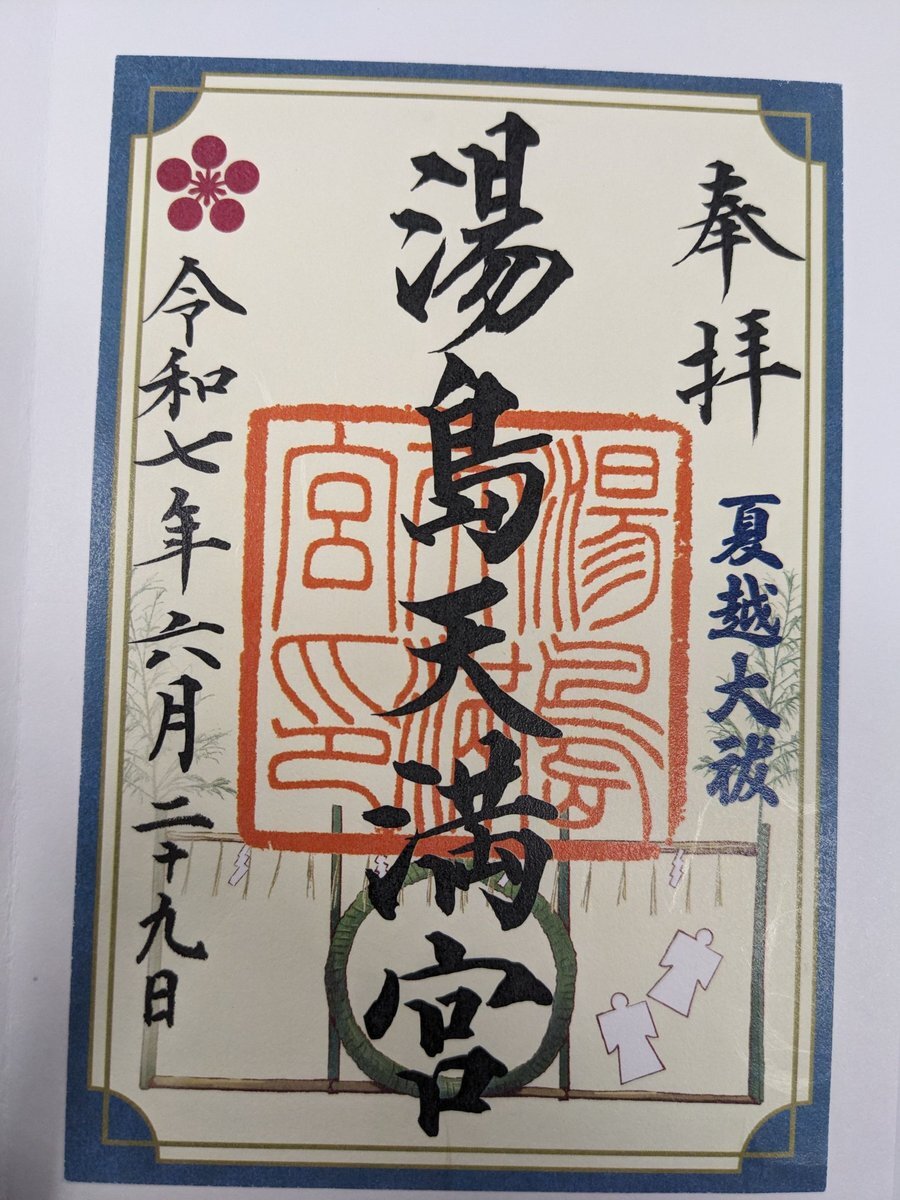 奉拝
夏越大祓
湯島天満宮
湯島天満宮印
令和七年六月二十九日